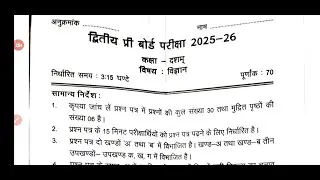 अनुक्रमांक
नाम
द्वितीय प्री बोर्ड परीक्षा 2025–26
कक्षा – दशम्
विषय : विज्ञान
निर्धारित समय : 3:15 घण्टे
पूर्णांक : 70
सामान्य निर्देश :
1. कृपया जांच लें प्रश्न पत्र में प्रश्नों की कुल संख्या 30 तथा मुद्रित पृष्ठों की
संख्या 06 है।
2. प्रश्न पत्र के 15 मिनट परीक्षार्थियों को प्रश्न पत्र पढ़ने के लिए निर्धारित है।
3. प्रश्न पत्र दो खण्डों 'अ' तथा 'ब' में विभाजित है। खण्ड–अ तथा खण्ड–ब तीन
उपखण्डों– उपखण्ड क, ख, ग में विभाजित है।